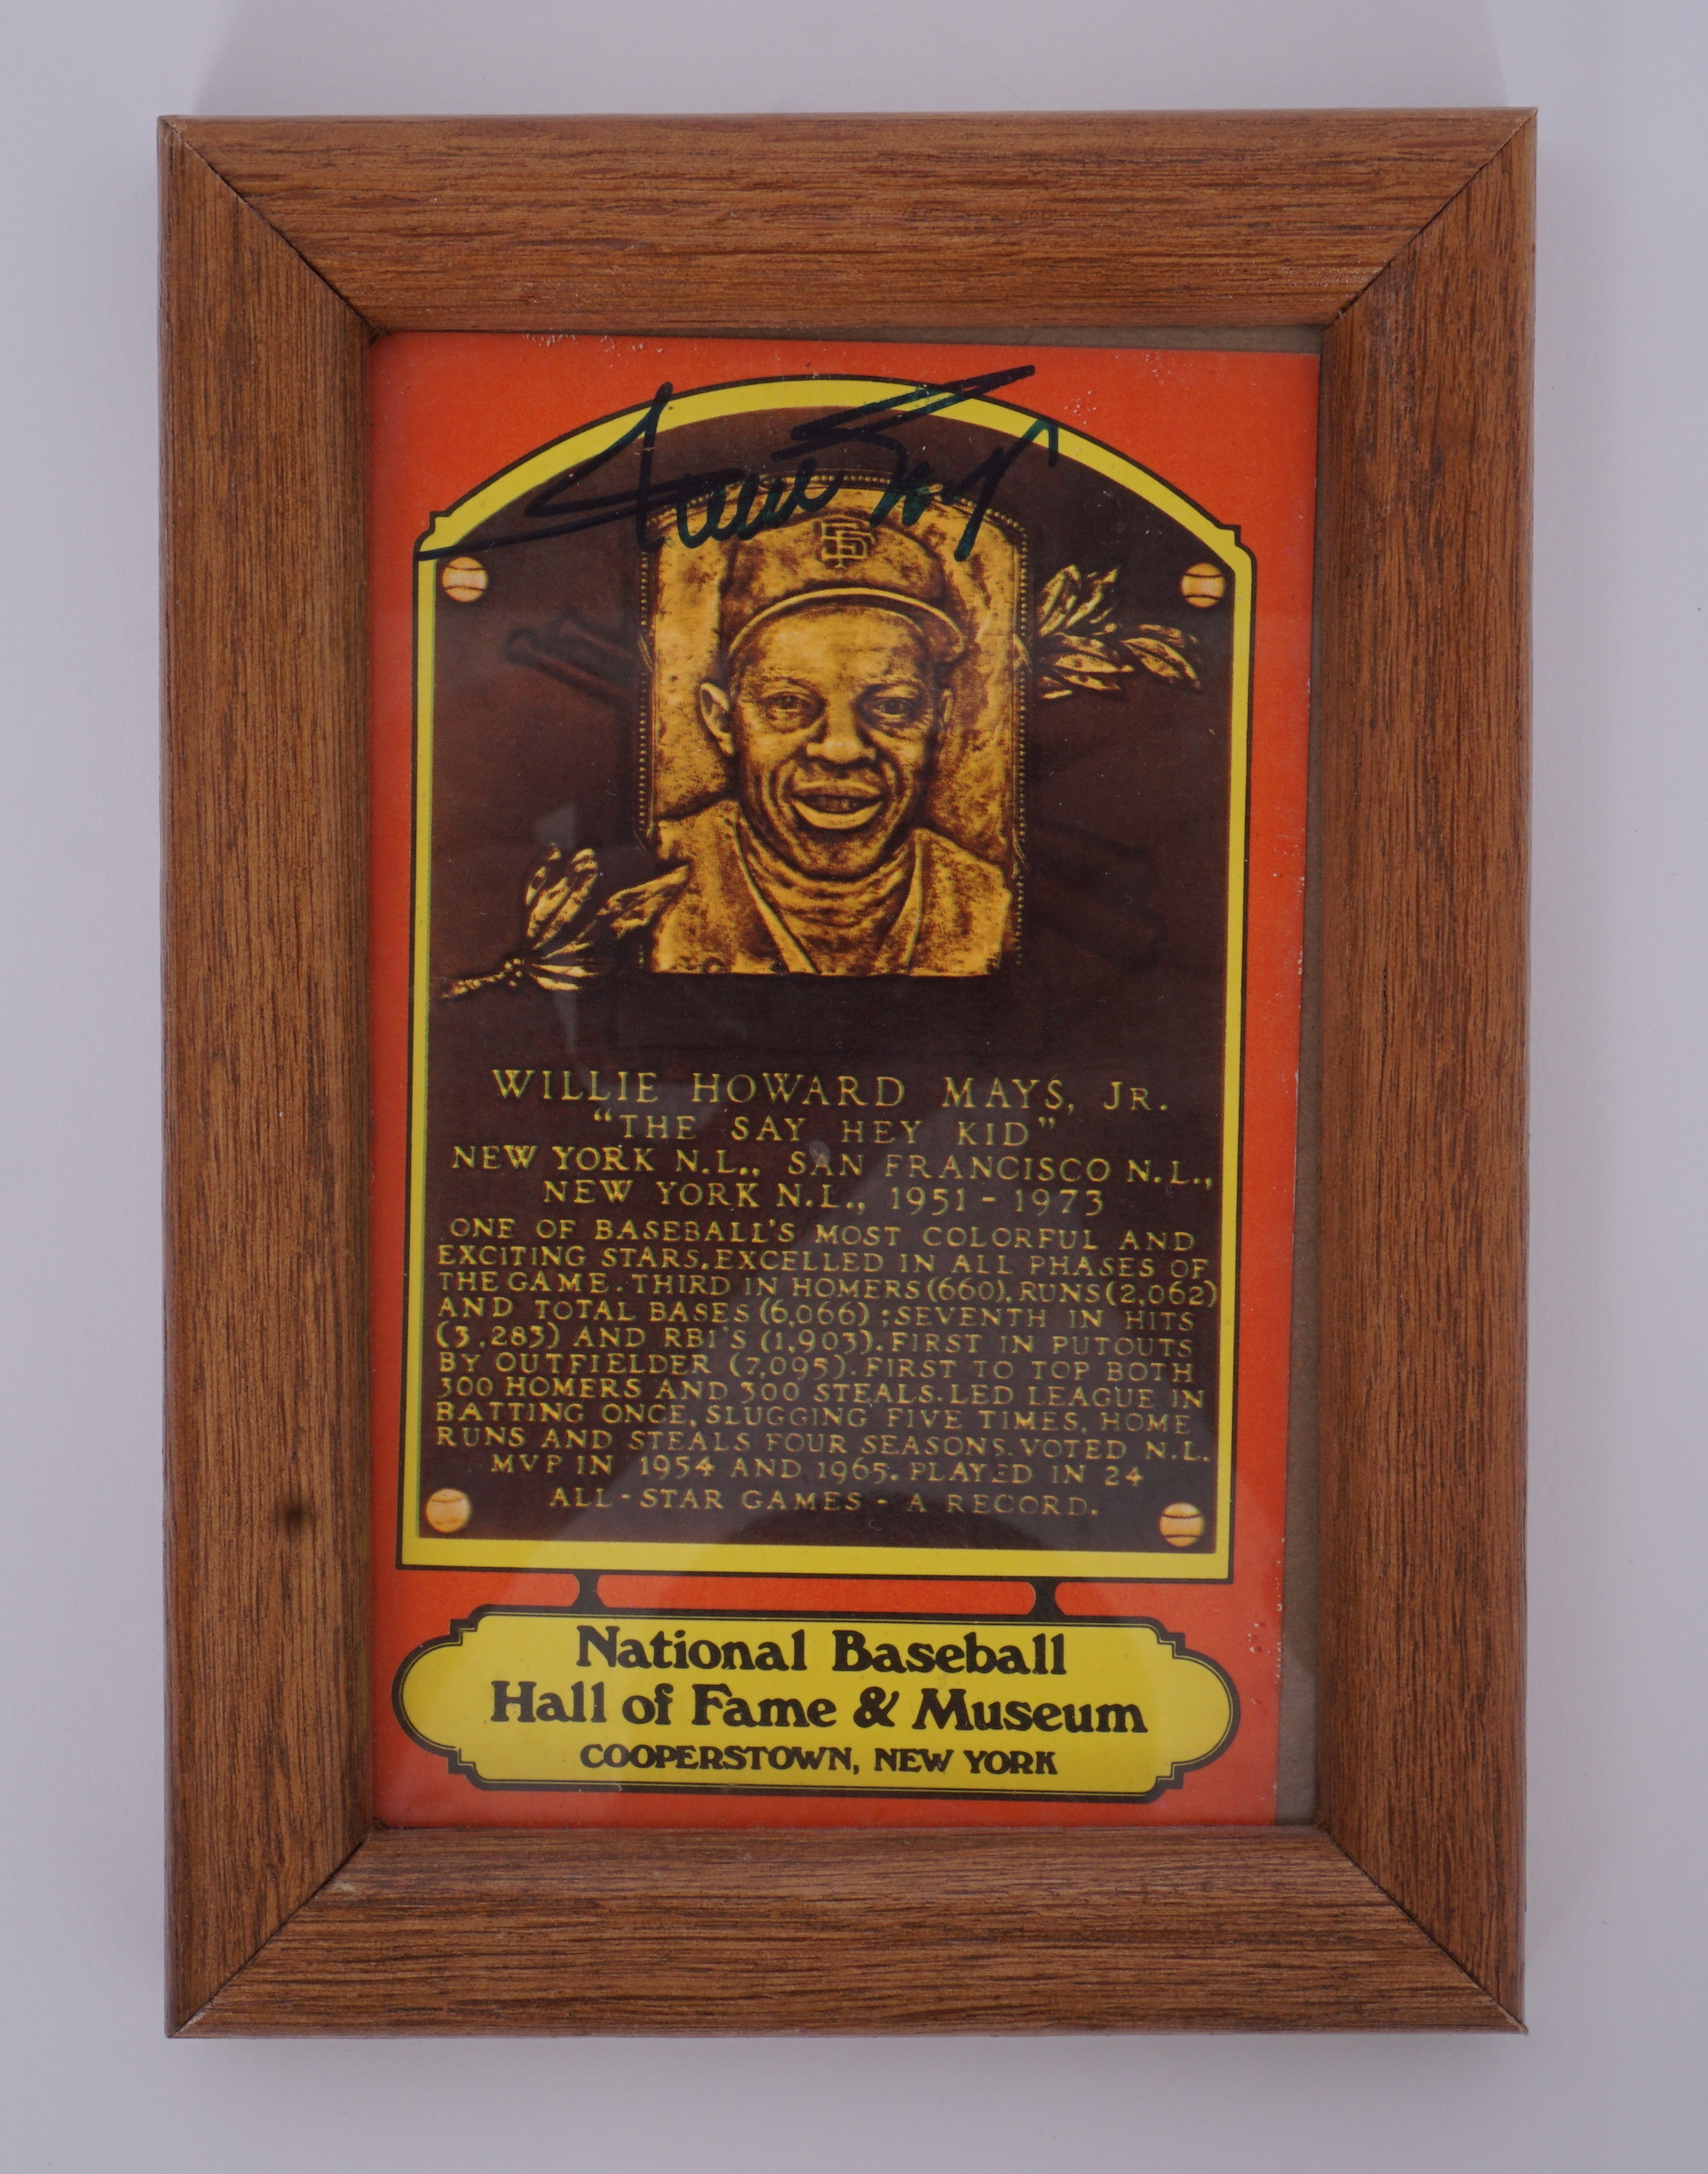 Willie Mays
SF
WILLIE HOWARD MAYS, JR.
"THE SAY HEY KID"
NEW YORK N.L., SAN FRANCISCO N.L.,
NEW YORK N.L., 1951 - 1973
ONE OF BASEBALL'S MOST COLORFUL AND
EXCITING STARS. EXCELLED IN ALL PHASES OF
THE GAME. THIRD IN HOMERS (660), RUNS (2,062)
AND TOTAL BASES (6,066) ; SEVENTH IN HITS
(3,283) AND RBI'S (1,903). FIRST IN PUTOUTS
BY OUTFIELDER (7,095). FIRST TO TOP BOTH
300 HOMERS AND 300 STEALS. LED LEAGUE IN
BATTING ONCE, SLUGGING FIVE TIMES, HOME
RUNS AND STEALS FOUR SEASONS. VOTED N.L.
MVP IN 1954 AND 1965. PLAYED IN 24
ALL-STAR GAMES - A RECORD.
National Baseball
Hall of Fame & Museum
COOPERSTOWN, NEW YORK